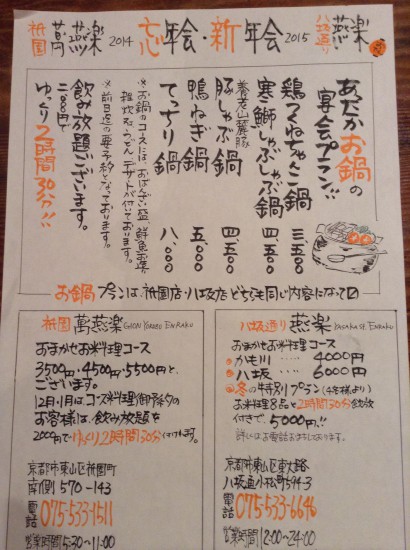 祇園 萬燕楽 2014 忘年会・新年会 2015 八坂通り 燕楽
あたたかお鍋の
宴会プラン!!
鶏つくねちゃんこ鍋 三、五〇〇
寒鰤しゃぶしゃぶ鍋 四、五〇〇
養老山麓豚
豚しゃぶ鍋 四、五〇〇
鴨ねぎ鍋 五、〇〇〇
てっちり鍋 八、〇〇〇
※お鍋のコースには、おばんざい盛、鮮魚お造り、
雑炊 うどん、デザートが付いております。
※前日迄の要予約となっております。
飲み放題ございます。
二、〇〇〇円で
ゆっくり2時間30分!!
お鍋プランは、祇園店・八坂店どちらも同じ内容になって〼
祇園 萬燕楽 GION YOROZU ENRAKU
おまかせお料理コース
3500円・4500円・5500円と
ございます。
12月・1月は、コース料理御予約の
お客様は、飲み放題を
2000円でゆっくり2時間30分
京都市東山区祇園町
南側570-143
電話 075-533-1511
営業時間 5:30〜11:00
八坂通り 燕楽 YASAKA ST. ENRAKU
おまかせお料理コース
かも川 ‥‥ 4000円
八坂 ‥‥ 6000円
冬の特別プラン(4名様より)
お料理8品と2時間30分飲放
付きで、5000円!!
詳しくはお電話でおまちしております。
京都市東山区東大路
八坂通小松町594-3
電話 075-533-6646
営業時間 12:00〜24:00